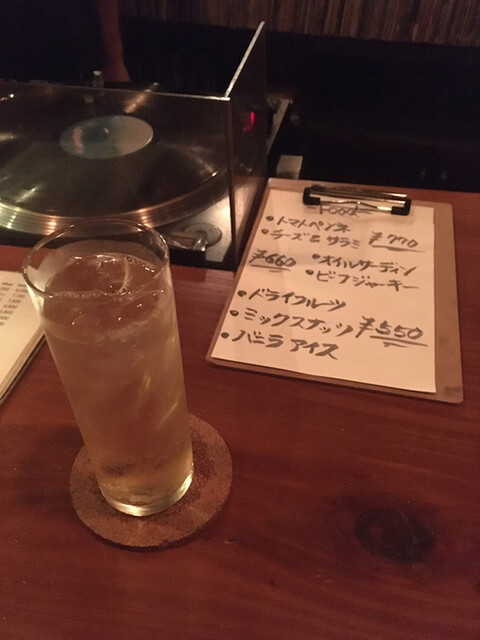 Food
• トマトペンネ
• チーズ & サラミ ¥770
¥660 • オイルサーディン
• ビーフジャーキー
• ドライフルーツ
• ミックスナッツ ¥550
• バニラアイス